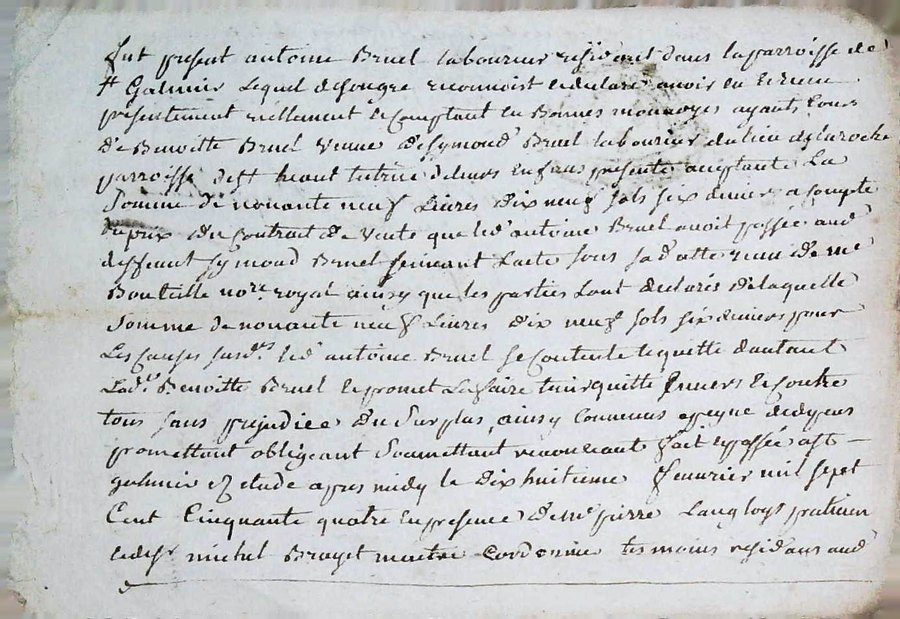 fut present antoine Bruel laboureur residant dans la parroisse de
st Galmier Lequel de son gre reconnoist et declare avoir eu et receu
presentement reellement et comptant en Bonnes monnoyes ayants cours
de Benoitte Bruel veuve de Symond Bruel laboureur du lieu de laroche
parroisse dest heant tutrice de leurs enfans presente acceptante La
Somme de nonante neuf Livres dix neuf sols six deniers a compte
du prix du Contrait de vente que led antoine Bruel avoit passée aud
deffunt Symond Bruel suivant Lacte sous sa datte receu de me
Bouteille nore royal ainsy que les parties Lont declarés de laquelle
Somme de nonante neuf Livres dix neuf sols six deniers pour
Les Causes susds led antoine Bruel se Contente et quitte dautant
Lade Benoitte Bruel et promet La faire tenir quitte Envers et Contre
tous sans prejudice du Surplus, ainsy Convenus a peyne de depens
promettant obligeant Soumettant renonceant fait et passée a st
galmier ez etude apres midy le dix huitieme feuvrier mil sept
Cent Cinquante quatre en presence de me pierre Langloys praticien
et de sr michel Brayet maitre Cordonnier tesmoins residans aud